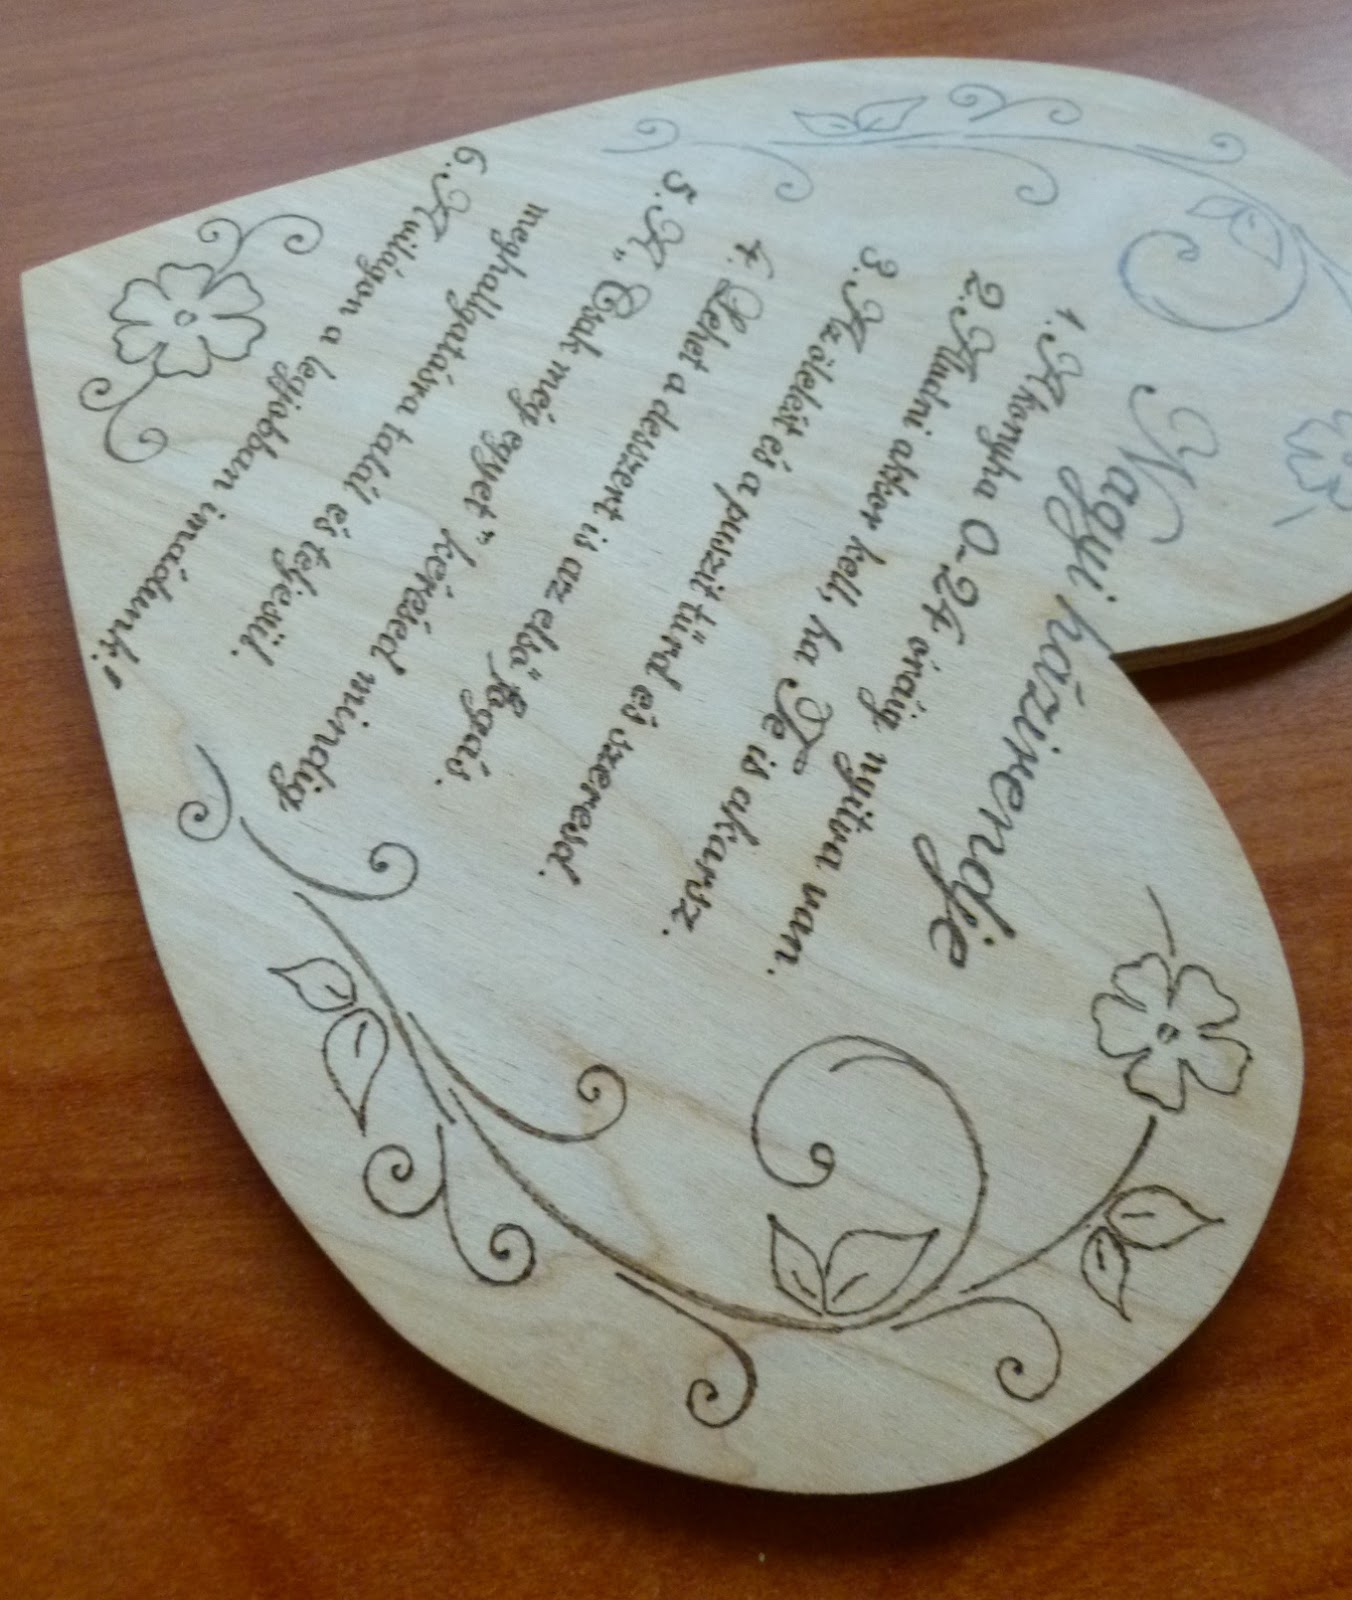 Nagyi házirendje
1. A konyha 0-24 óráig nyitva van.
2. Aludni akkor kell, ha Te is akarsz.
3. Az ölelést és a puszit tűrd és szeresd.
4. Lehet a desszert is az első fogás.
5. A „Csak még egyet" kérésed mindig
meghallgatásra talál és teljesül.
6. A világon a legjobban imádunk!